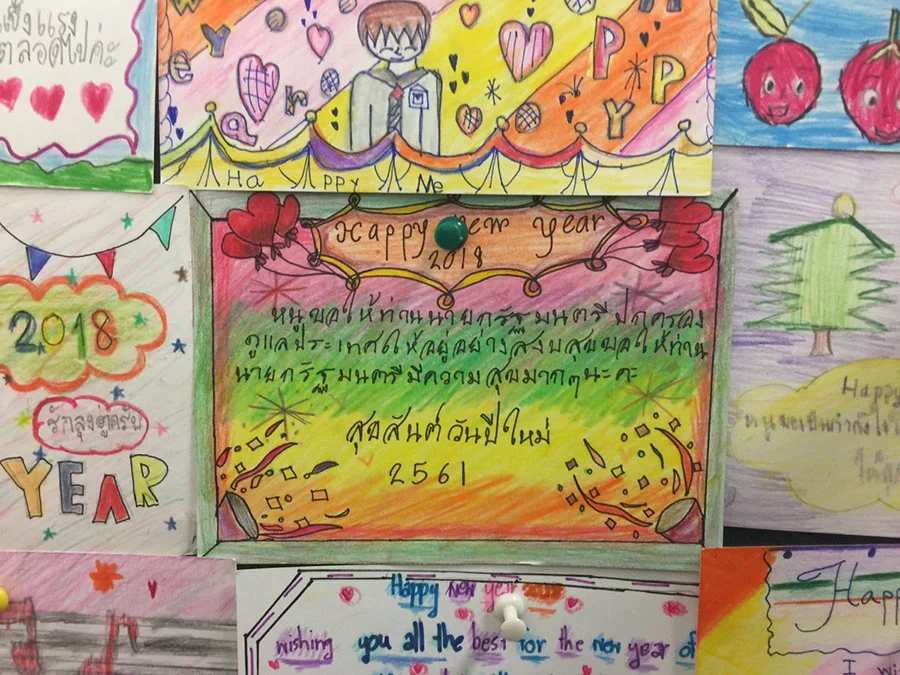 แข็งแรง
ตลอดไปค่ะ
Ha PPY Me
PPY
Happy New Year
2018
หนูขอให้ท่านนายกรัฐมนตรีปกครอง
ดูแลประเทศให้อยู่อย่างสงบสุขขอให้ท่าน
นายกรัฐมนตรีมีความสุขมากๆนะคะ
สุขสันต์วันปีใหม่
2561
2018
รักลุงตู่ครับ
YEAR
Happy
หนูขอเป็นกำลังใจให้
Happy new year
wishing you all the best for the new year of
Happ
I wi